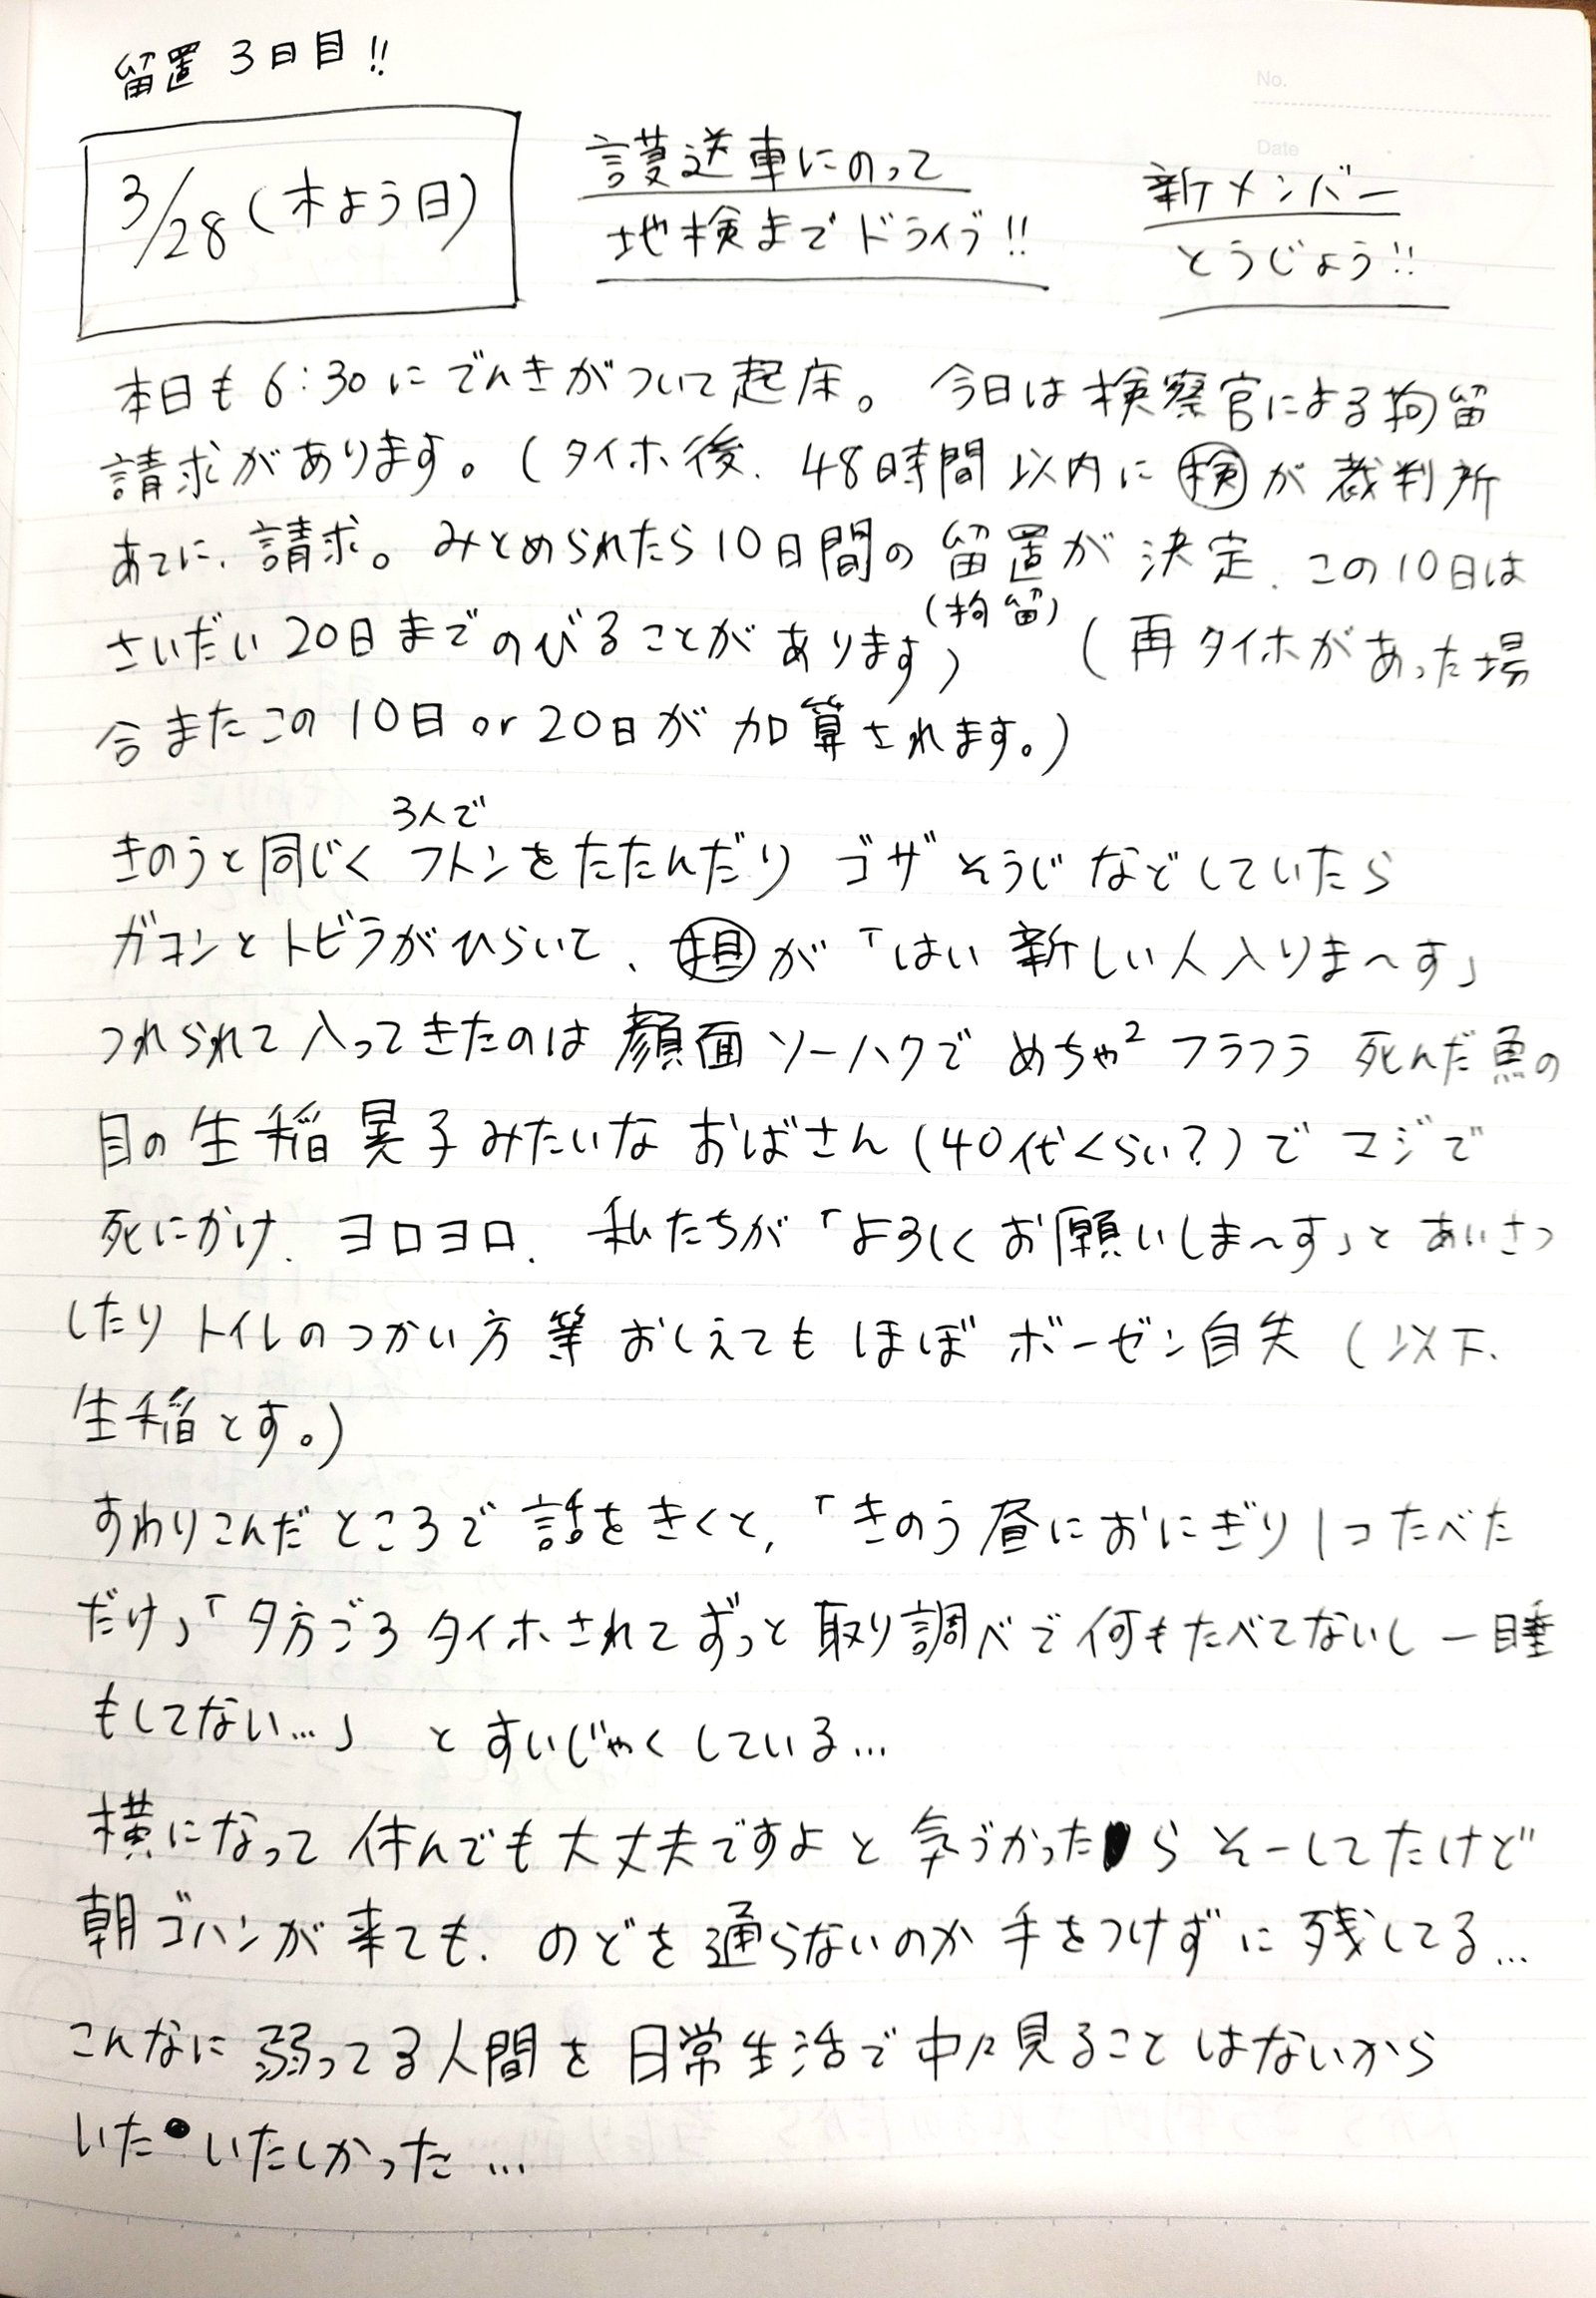 留置 3日目!!
No.
Date
3/28(木よう日)
護送車にのって
地検までドライブ!!
新メンバー
とうじょう!!
本日も6:30にでんきがついて起床。 今日は検察官による拘留
請求があります。(タイホ後、48時間以内に㊥検が裁判所
あてに、請求。みとめられたら10日間の留置が決定、この10日は
(拘留)
さいだい20日までのびることがあります) (再タイホがあった場
合またこの10日or20日が加算されます。)
3人で
きのうと同じくフトンをたたんだり ゴザそうじなどしていたら
ガコンとトビラがひらいて、 が「はい 新しい人入りま〜す」
つれられて入ってきたのは顔面ソーハクで めちゃ² フラフラ 死んだ魚の
目の生稲晃子みたいな おばさん(40代くらい?)で マジで
死にかけ、ヨロヨロ、 私たちが「よろしくお願いしま〜す」と あいさつ
したり トイレのつかい方 等 おしえても ほぼ ボーゼン自失 (以下、
生稲とす。)
すわりこんだところで 話をきくと、「きのう昼におにぎり1つたべた
だけ」「夕方ごろタイホされてずっと取り調べで何もたべてないし一睡
もしてない…」 と すいじゃくしている…
横になって 休んでも大丈夫ですよと 気づかったら そーしてたけど
朝ゴハンが来ても、のどを通らないのか 手をつけずに 残してる…
こんなに弱ってる人間を日常生活で中々見ることはないから
いたいたしかった…